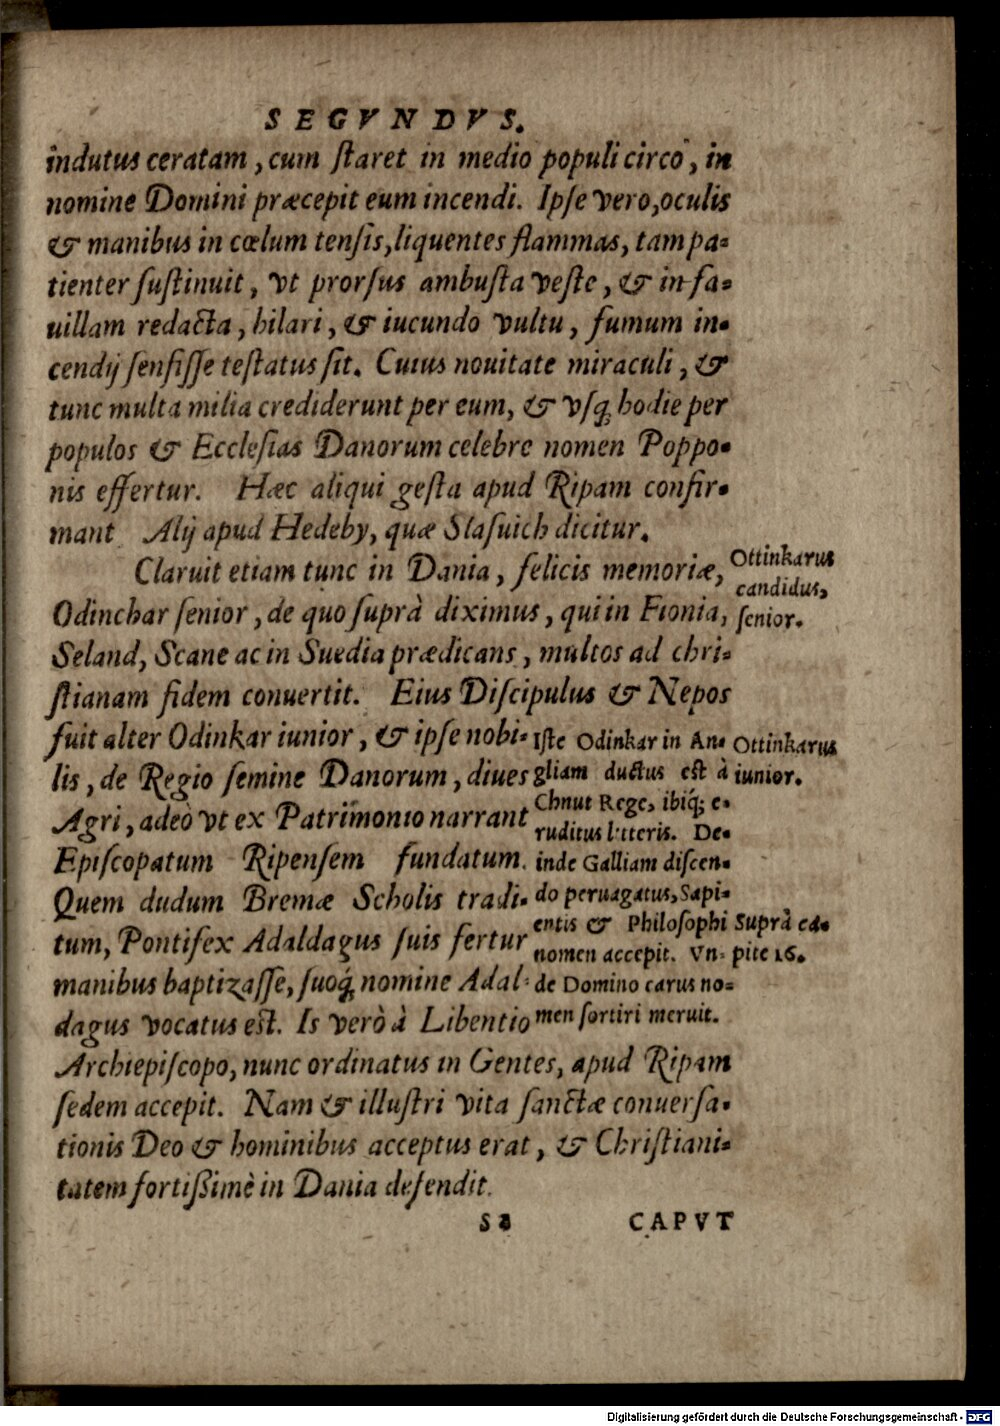 SEGVNDVS.
indutus ceratam, cum ſtaret in medio populi circo, in
nomine Domini præcepit eum incendi. Ipſe vero, oculis
& manibus in cœlum tenſis, liquentes flammas, tam pa-
tienter ſuſtinuit, vt prorſus ambuſta veſte, & in fa-
uillam redacta, hilari, & iucundo vultu, fumum in-
cendij ſenſiſſe teſtatus ſit. Cuius nouitate miraculi, &
tunc multa milia crediderunt per eum, & vſq; hodie per
populos & Eccleſias Danorum celebre nomen Poppo-
nis effertur. Hæc aliqui geſta apud Ripam confir-
mant Alij apud Hedeby, quæ Slaſuich dicitur.
Claruit etiam tunc in Dania, felicis memoriæ,
Odinchar ſenior, de quo ſuprà diximus, qui in Fionia,
Seland, Scane ac in Suedia prædicans, multos ad chri-
ſtianam fidem conuertit. Eius Diſcipulus & Nepos
fuit alter Odinkar iunior, & ipſe nobi-
lis, de Regio ſemine Danorum, diues
Agri, adeò vt ex Patrimonio narrant
Epiſcopatum Ripenſem fundatum.
Quem dudum Bremæ Scholis tradi-
tum, Pontifex Adaldagus ſuis fertur
manibus baptizaſſe, ſuoq́; nomine Adal-
dagus vocatus eſt. Is verò à Libentio
Archiepiſcopo, nunc ordinatus in Gentes, apud Ripam
ſedem accepit. Nam & illuſtri vita ſanctæ conuerſa-
tionis Deo & hominibus acceptus erat, & Chriſtiani-
tatem fortißimè in Dania defendit.
Ottinkarus
candidus,
ſenior.
Iſte Odinkar in An-
gliam ductus eſt à
Chnut Rege, ibiq́; e-
ruditus litteris. De-
inde Galliam diſcen-
do peruagatus, Sapi-
entis & Philoſophi
nomen accepit. Vn-
de Domino carus no-
men ſortiri meruit.
Ottinkarus
iunior.
Suprà ca-
pite 16.
S 2 CAPVT
Digitalisierung gefördert durch die Deutsche Forschungsgemeinschaft - DFG